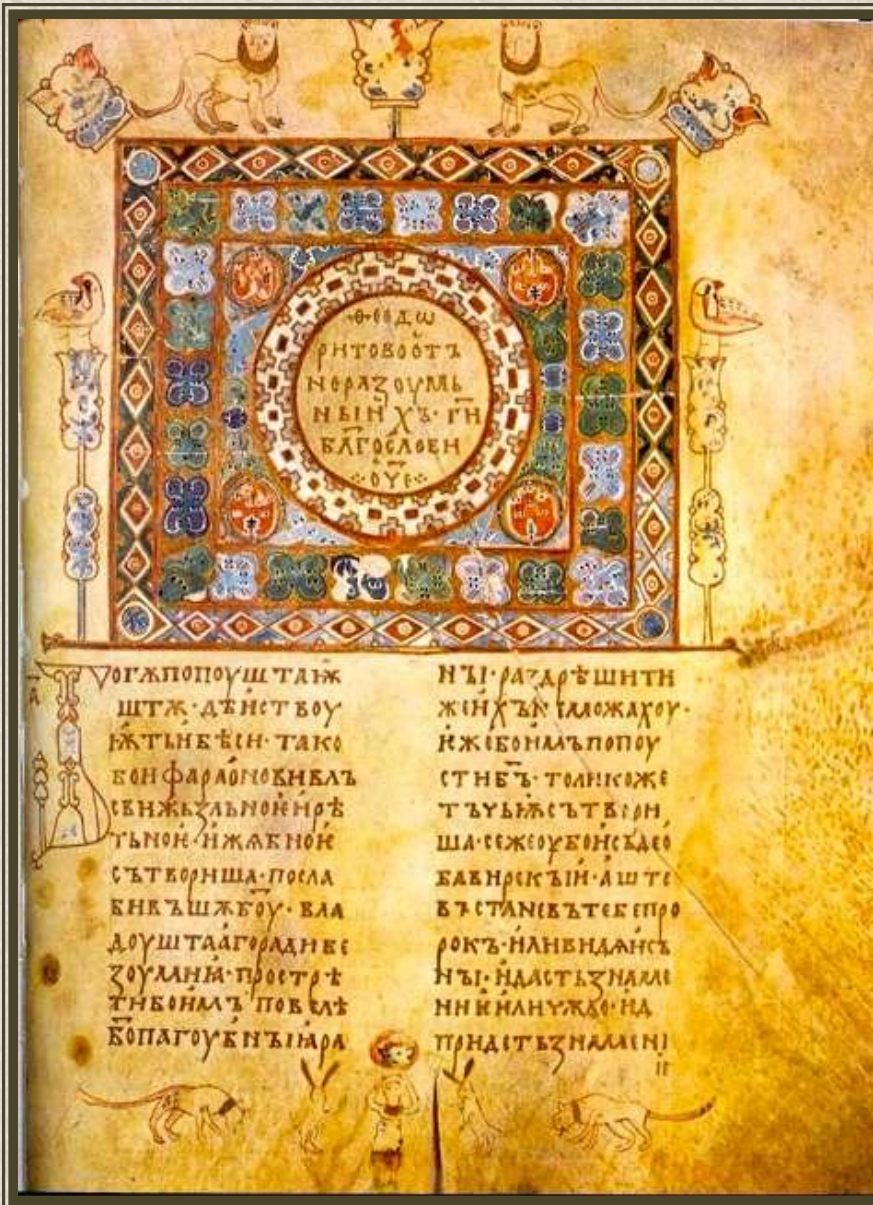 ѲЕОДѠ
РИТОВО ОТЪ
НЕРАЗОУМЬ
НЪІИХЪ · Г҃И
БЛ҃ГОСЛОВИ
О҃У҃Е
А҃
БОГѪ ПОПОУШТАѬ
ШТѪ · ДѢИСТВОУ
ѬТЬ И БѢСИ · ТАКО
БО И ФАРАОНОВИ ВЛЪ
СВИ ЖЬЗЛЬНОѤ И РѢ
ЧЬНОѤ · И ЖѦБНОѤ
СЪТВОРИША · ПОСЛА
БИВЪШѪ Б҃ОУ · ВЛА
ДОУШТААГО РАДИ БЕ
ЗОУМИꙖ · ПРОСТРѢ
ТИ БО ИМЪ ПОВЕЛѢ
Б҃О ПАГОУБНЪІꙖ РА
НЪІ · РАЗДРѢШИТИ
ЖЕ ИХЪ НЕ МОЖАХОУ ·
ИЖЕ БО ИМЪ ПОПОУ
СТИ Б҃Ъ · ТОЛИКО ЖЕ
ТЪЧЬѬ СЪТВОРИ
ША · СЕ ЖЕ ОУБО И СЪДЕО
БАВИРСКЪІИ · АШТЕ
ВЪСТАНЕ ВЪ ТЕБЕ ПРО
РОКЪ · ИЛИ ВИДѦИ СЪ
НЪІ · И ДАСТЬ ЗНАМЕ
НИѤ ИЛИ ЧЮДО · И
ПРИДЕТЬ ЗНАМЕНІ